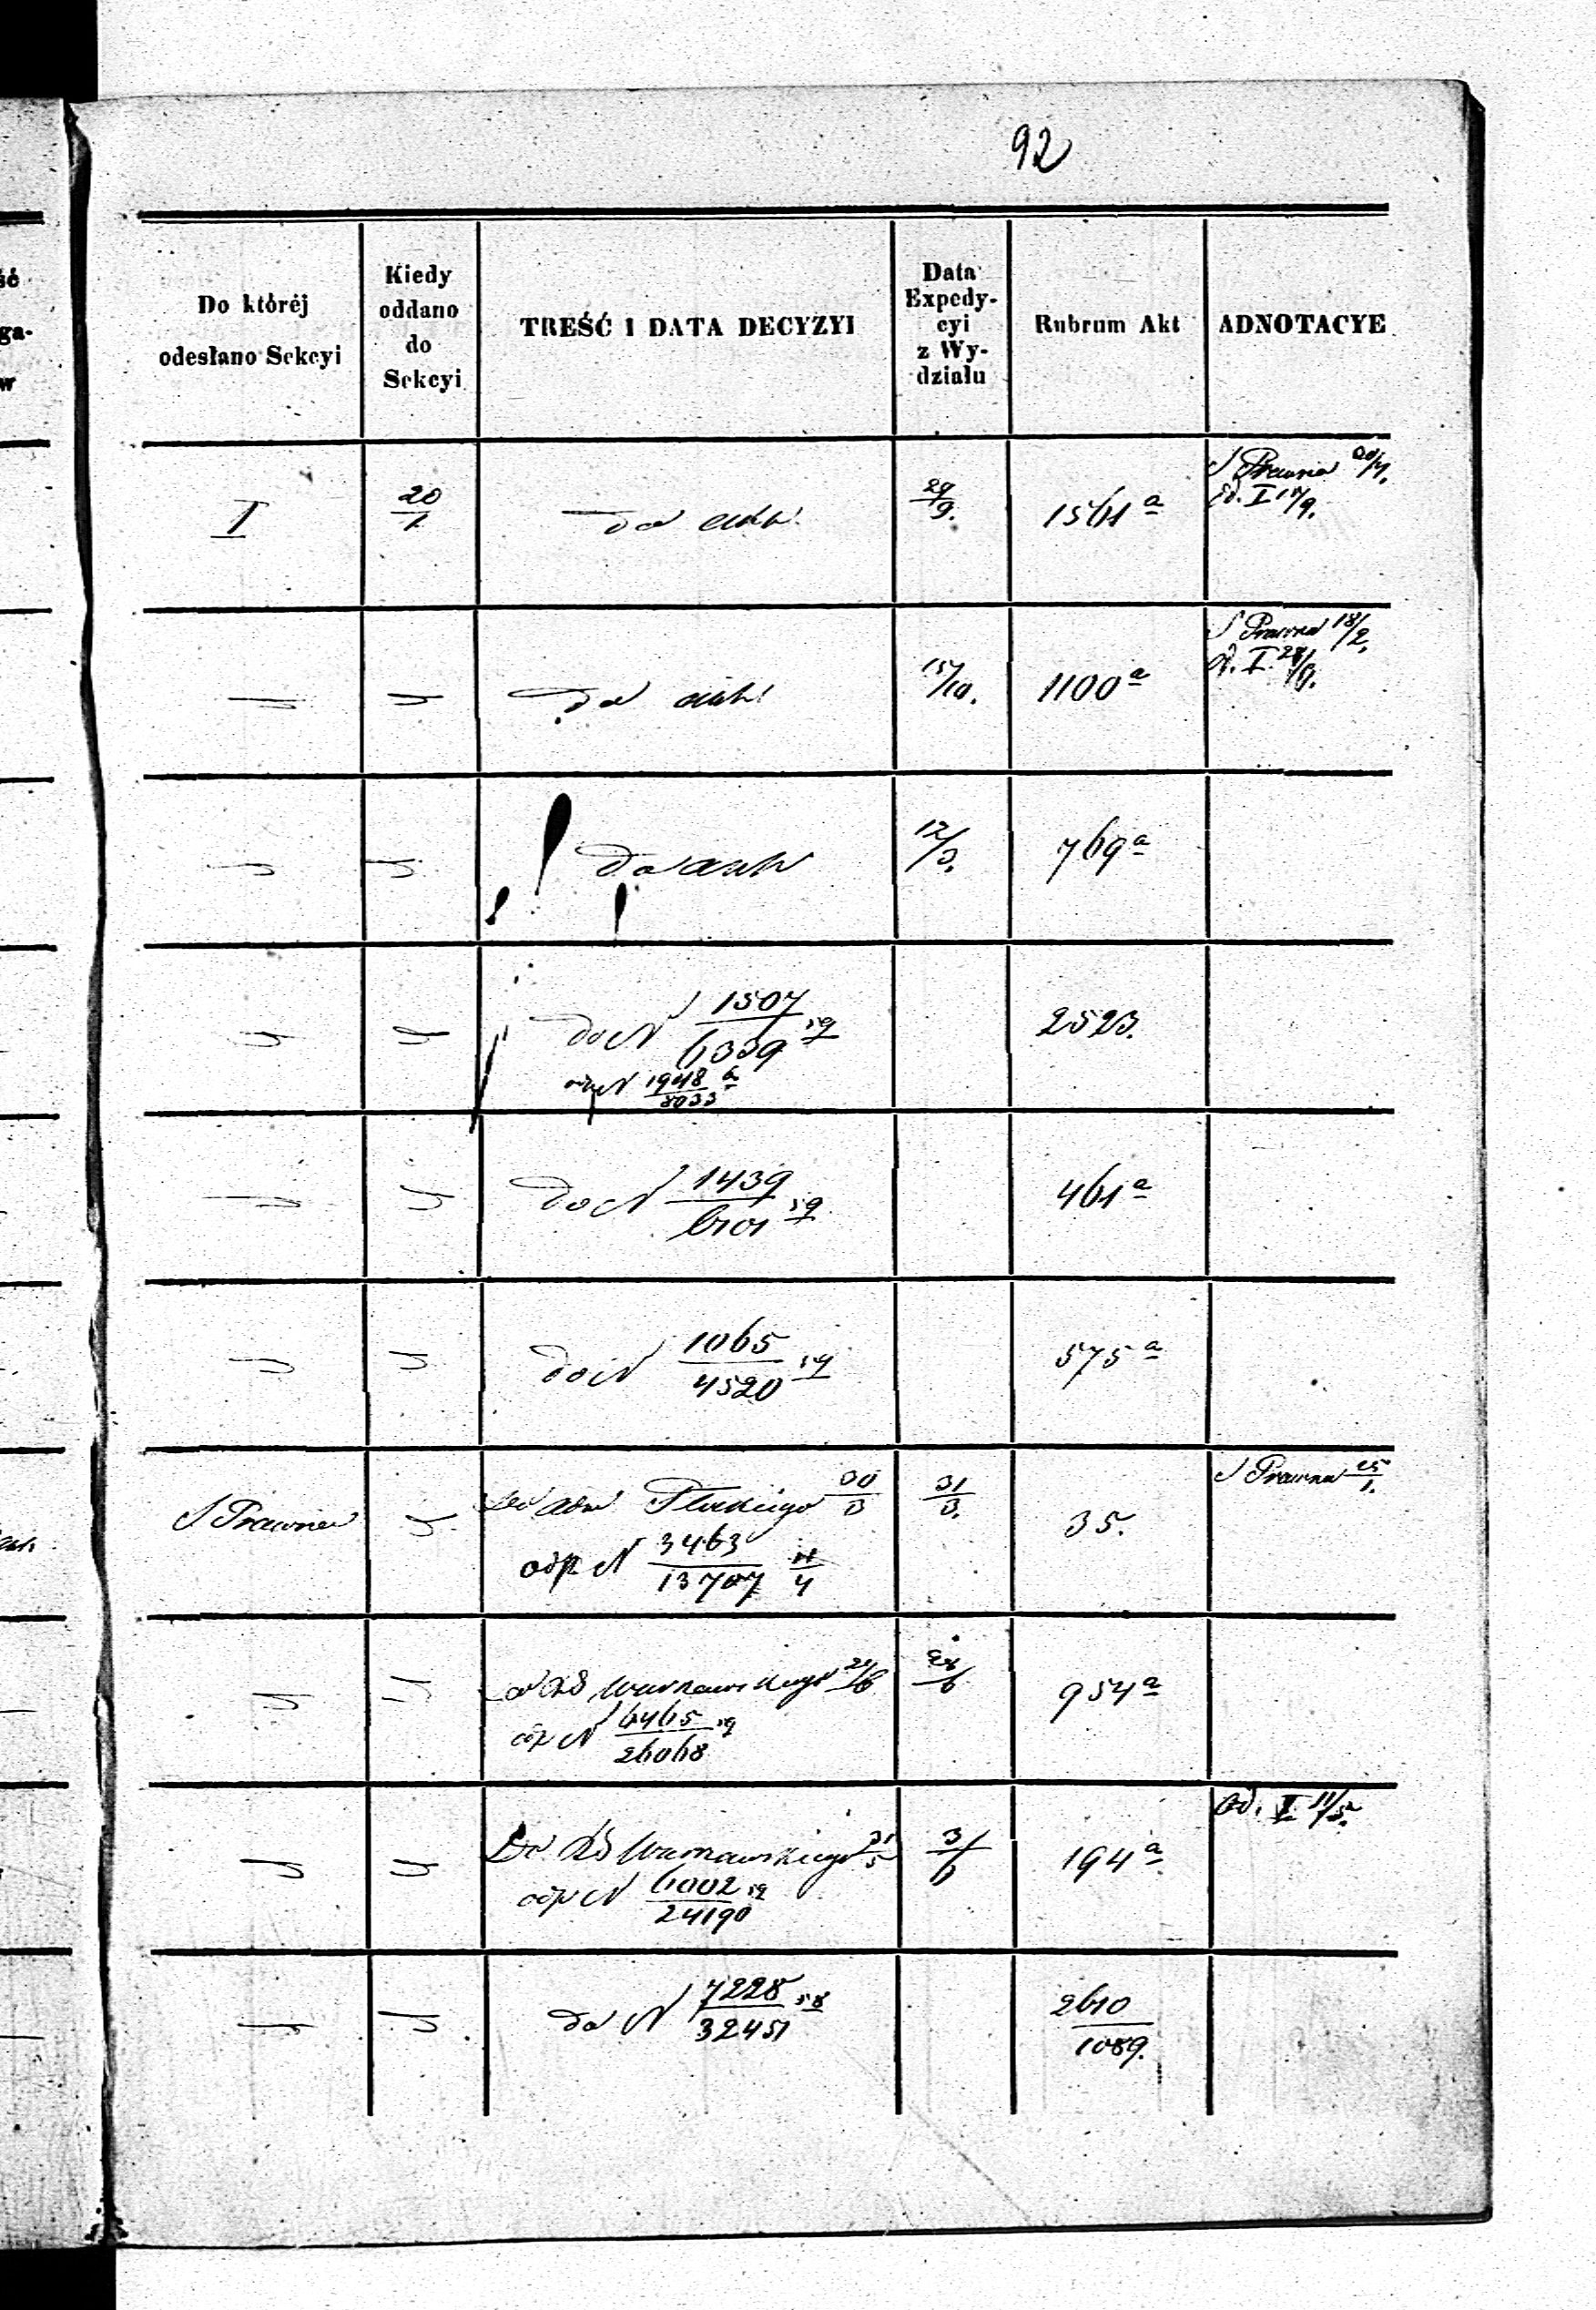 92
Do któréj
odesłano Sekcyi
Kiedy
oddano
do
Sekcyi
TREŚĆ I DATA DECYZYI
Data
Expedy-
cyi
z Wy-
działu
Rubrum Akt
ADNOTACYE
I
20/1
do akt
29/9.
1561 a
S Prawna 20/1.
Od. I 17/9.
do akt
15/10.
1100 a
S Prawna 18/2.
Od. I 28/9.
do akt
12/3.
769 a
do N 1507/6339 59
odp N 1948/8033
2523.
do N 1439/6101 59
461 a
do N 1065/4520 59
575 a
S Prawna
Do Adw Płockiego 30/3
odp N 3463/13707 11/4
31/3.
35.
S Prawna 25/1.
Warszawskiego 24/6
odp N 6465/26068 59
28/6
954 a
Do RG Warszawskiego 31/5
odp N 6002/24190 59
3/6
194 a
Od. I. 11/5.
do N 7228/32451 58
2610/1089.